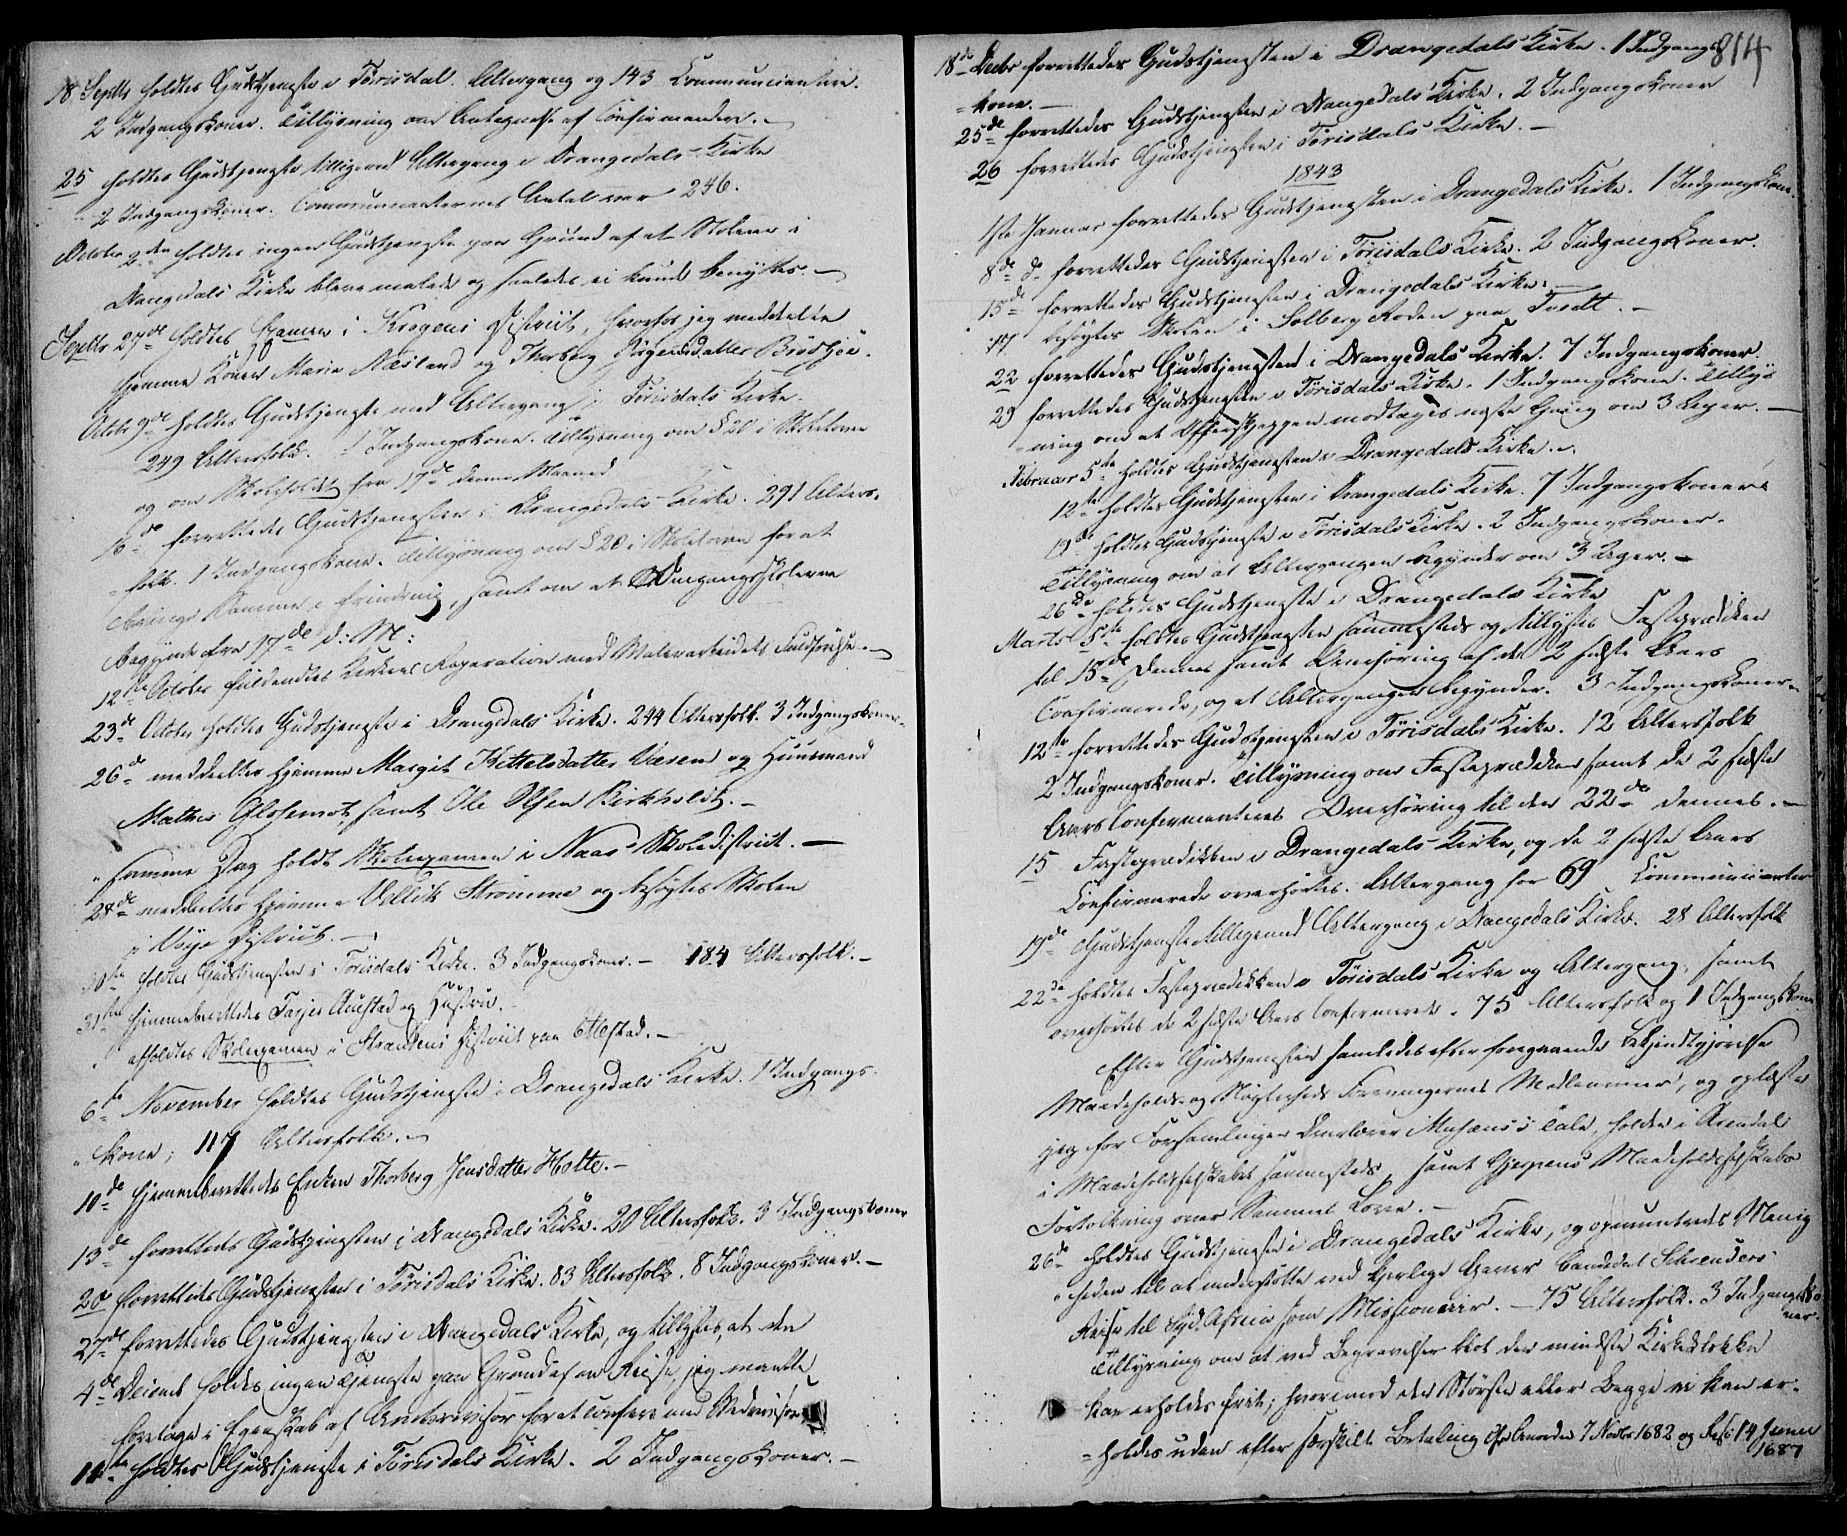 18 Septbr holdtes Gudstjeneste i Tørisdal. Altergang og 143 Communicantere.
2 Indgangskoner. Tillysning om Antagelse af Confirmander. –
25 holdtes Gudstjeneste tilligemed Altergang i Drangedals Kirke
2 Indgangskoner. Communicanternes Antal var 246.
October 2den holdtes ingen Gudstjeneste paa Grund af at Stolene i
Drangedals Kirke bleve malede og saaledes ei kunde benyttes. –
Septbr 27de holdtes Examen i Krogens District, hvorfor jeg meddelte
hjemme Konen Marie Næsland og Thorberg Jørgensdatter Brødsjøe.
Octbr 9de holdtes Gudstjeneste med Altergang i Tørisdals Kirke.
249 Altersfolk. 1 Indgangskone. Tillysning om § 20 i Skoleloven
og om Skolehold fra 17de denne Maaned
16de forrettedes Gudstjenesten i Drangedals Kirke. 291 Alters-
folk. 1 Indgangskone. Tillysning om § 20 i Skoleloven for at
bringe Samme i Erindring, samt om at Omgangsskolerne
begynde fra 17de d: M:
12te October fuldendtes Kirkens Reparation med Malerarbeidets Fuldførelse. –
23de Octbr holdtes Gudstjeneste i Drangedals Kirke. 244 Altersfolk. 3 Indgangskoner.
26de meddeeltes hjemme Margit Kittelsdatter Væsen og Huusmand
Mathis samt Ole Olsen Kirkholdt. –
samme Dag holdt Skoleexamen i Naas Skoledistrict. –
28de meddeeltes hjemme Strømme og besøgtes Skolen
i Voje District. –
30te holdtes Gudstjenesten i Tørisdals Kirke. 3 Indgangskoner. – 184 Altersfolk. –
31te hjemmeberettedes Tarjei Austad og Hustru.
afholdtes Skoleexamen i Strandens District paa Ettestad. –
6te November holdtes Gudstjeneste i Drangedals Kirke. 1 Indgangs-
kone; 117 Altersfolk. –
10de hjemmeberettedes Enken Thorberg Jensdatter Holte. –
13de forrettedes Gudstjenesten i Drangedals Kirke. 20 Altersfolk. 3 Indgangskoner
20 forrettedes Gudstjenesten i Tørisdals Kirke. 83 Altersfolk. 8 Indgangskoner. –
27de forrettedes Gudstjenesten i Drangedals Kirke, og tillystes, at den
4de Decemb holdes ingen Tjeneste paa Grund af en Reise, jeg maatte
foretage i Egenskab af for at conferere med Medrevisor
11te holdtes Gudstjeneste i Tørisdals Kirke. 2 Indgangskoner. –
814
18de Decbr forrettedes Gudstjenesten i Drangedals Kirke. 1 Indgangs-
kone. –
25de forrettedes Gudstjenesten i Drangedals Kirke. 2 Indgangskoner
26 forrettedes Gudstjenesten i Tørisdals Kirke. –
1843
1ste Januar forrettedes Gudstjenesten i Drangedals Kirke. 1 Indgangskone.
8de d. forrettedes Gudstjenesten i Tørisdals Kirke. 2 Indgangskoner.
15de forrettedes Gudstjenesten i Drangedals Kirke. –
17 besøgtes Skolen i Solberg Roden paa Tvedt. –
22 forrettedes Gudstjenesten i Drangedals Kirke. 7 Indgangskoner.
29 forrettedes Gudstjenesten i Tørisdals Kirke. 1 Indgangskone. Tillys-
ning om at Offerskjeppen modtages næste Gang om 3 Uger. –
Februar 5te holdtes Gudstjenesten i Drangedals Kirke. –
12te holdtes Gudstjenesten i Drangedals Kirke. 7 Indgangskoner.
19de holdtes Gudstjeneste i Tørisdals Kirke. 2 Indgangskoner.
Tillysning om at Altergangen begynder om 3 Uger. –
26de holdtes Gudstjeneste i Drangedals Kirke
Marts 5te holdtes Gudstjenesten sammesteds og tillystes Fasteprædiken
til 15de dennes samt Overhøring af de 2 sidste Aars
Confirmerede, og at Altergangen begynder. 3 Indgangskoner. –
12te forrettedes Gudstjenesten i Tørisdals Kirke. 12 Altersfolk
2 Indgangskoner. Tillysning om Fasteprædiken samt de 2 sidste
Aars Confirmanteres Overhøring til den 22de dennes. –
15 Fasteprædiken i Drangedals Kirke, og de 2 sidste Aars
Confirmerede overhørtes. Altergang for 69 Communicanter
19de Gudstjeneste tilligemed Altergang i Drangedals Kirke. 28 Altersfolk
22de holdtes Fasteprædiken i Tørisdals Kirke og Altergang, samt
overhørtes de 2 sidste Aars Confirmerede. 75 Altersfolk og 1 Indgangskone
Efter Gudstjenesten samledes efter foregaaende Bekjendtgjørelse
Maadeholds- og Nøgterheds Foreningernes Medlemmer, og oplæste
jeg for Forsamlingen Overlærer Musæus's Tale, holden i Arendal
i Maadeholdsselskabet sammesteds, samt Gjerpens Maadeholdsselskabs
Fortolkning over Sammes Love. –
26de holdtes Gudstjeneste i Drangedals Kirke, og opmuntredes Menig-
heden til at understøtte med kjerlige Gaver Candidat Schreuders
Reise til Syd-Africa som Missionair. – 75 Altersfolk. 3 Indgangsko-
ner.
Tillysning om at ved Begravelser blot den mindste Kirkeklokke
kan erholdes frit; hvorimod den Største eller Begge ei kan er-
holdes uden efter særskilt Betaling cfr Anordn 7 Novbr 1682 og Res: 14 Juni
1687